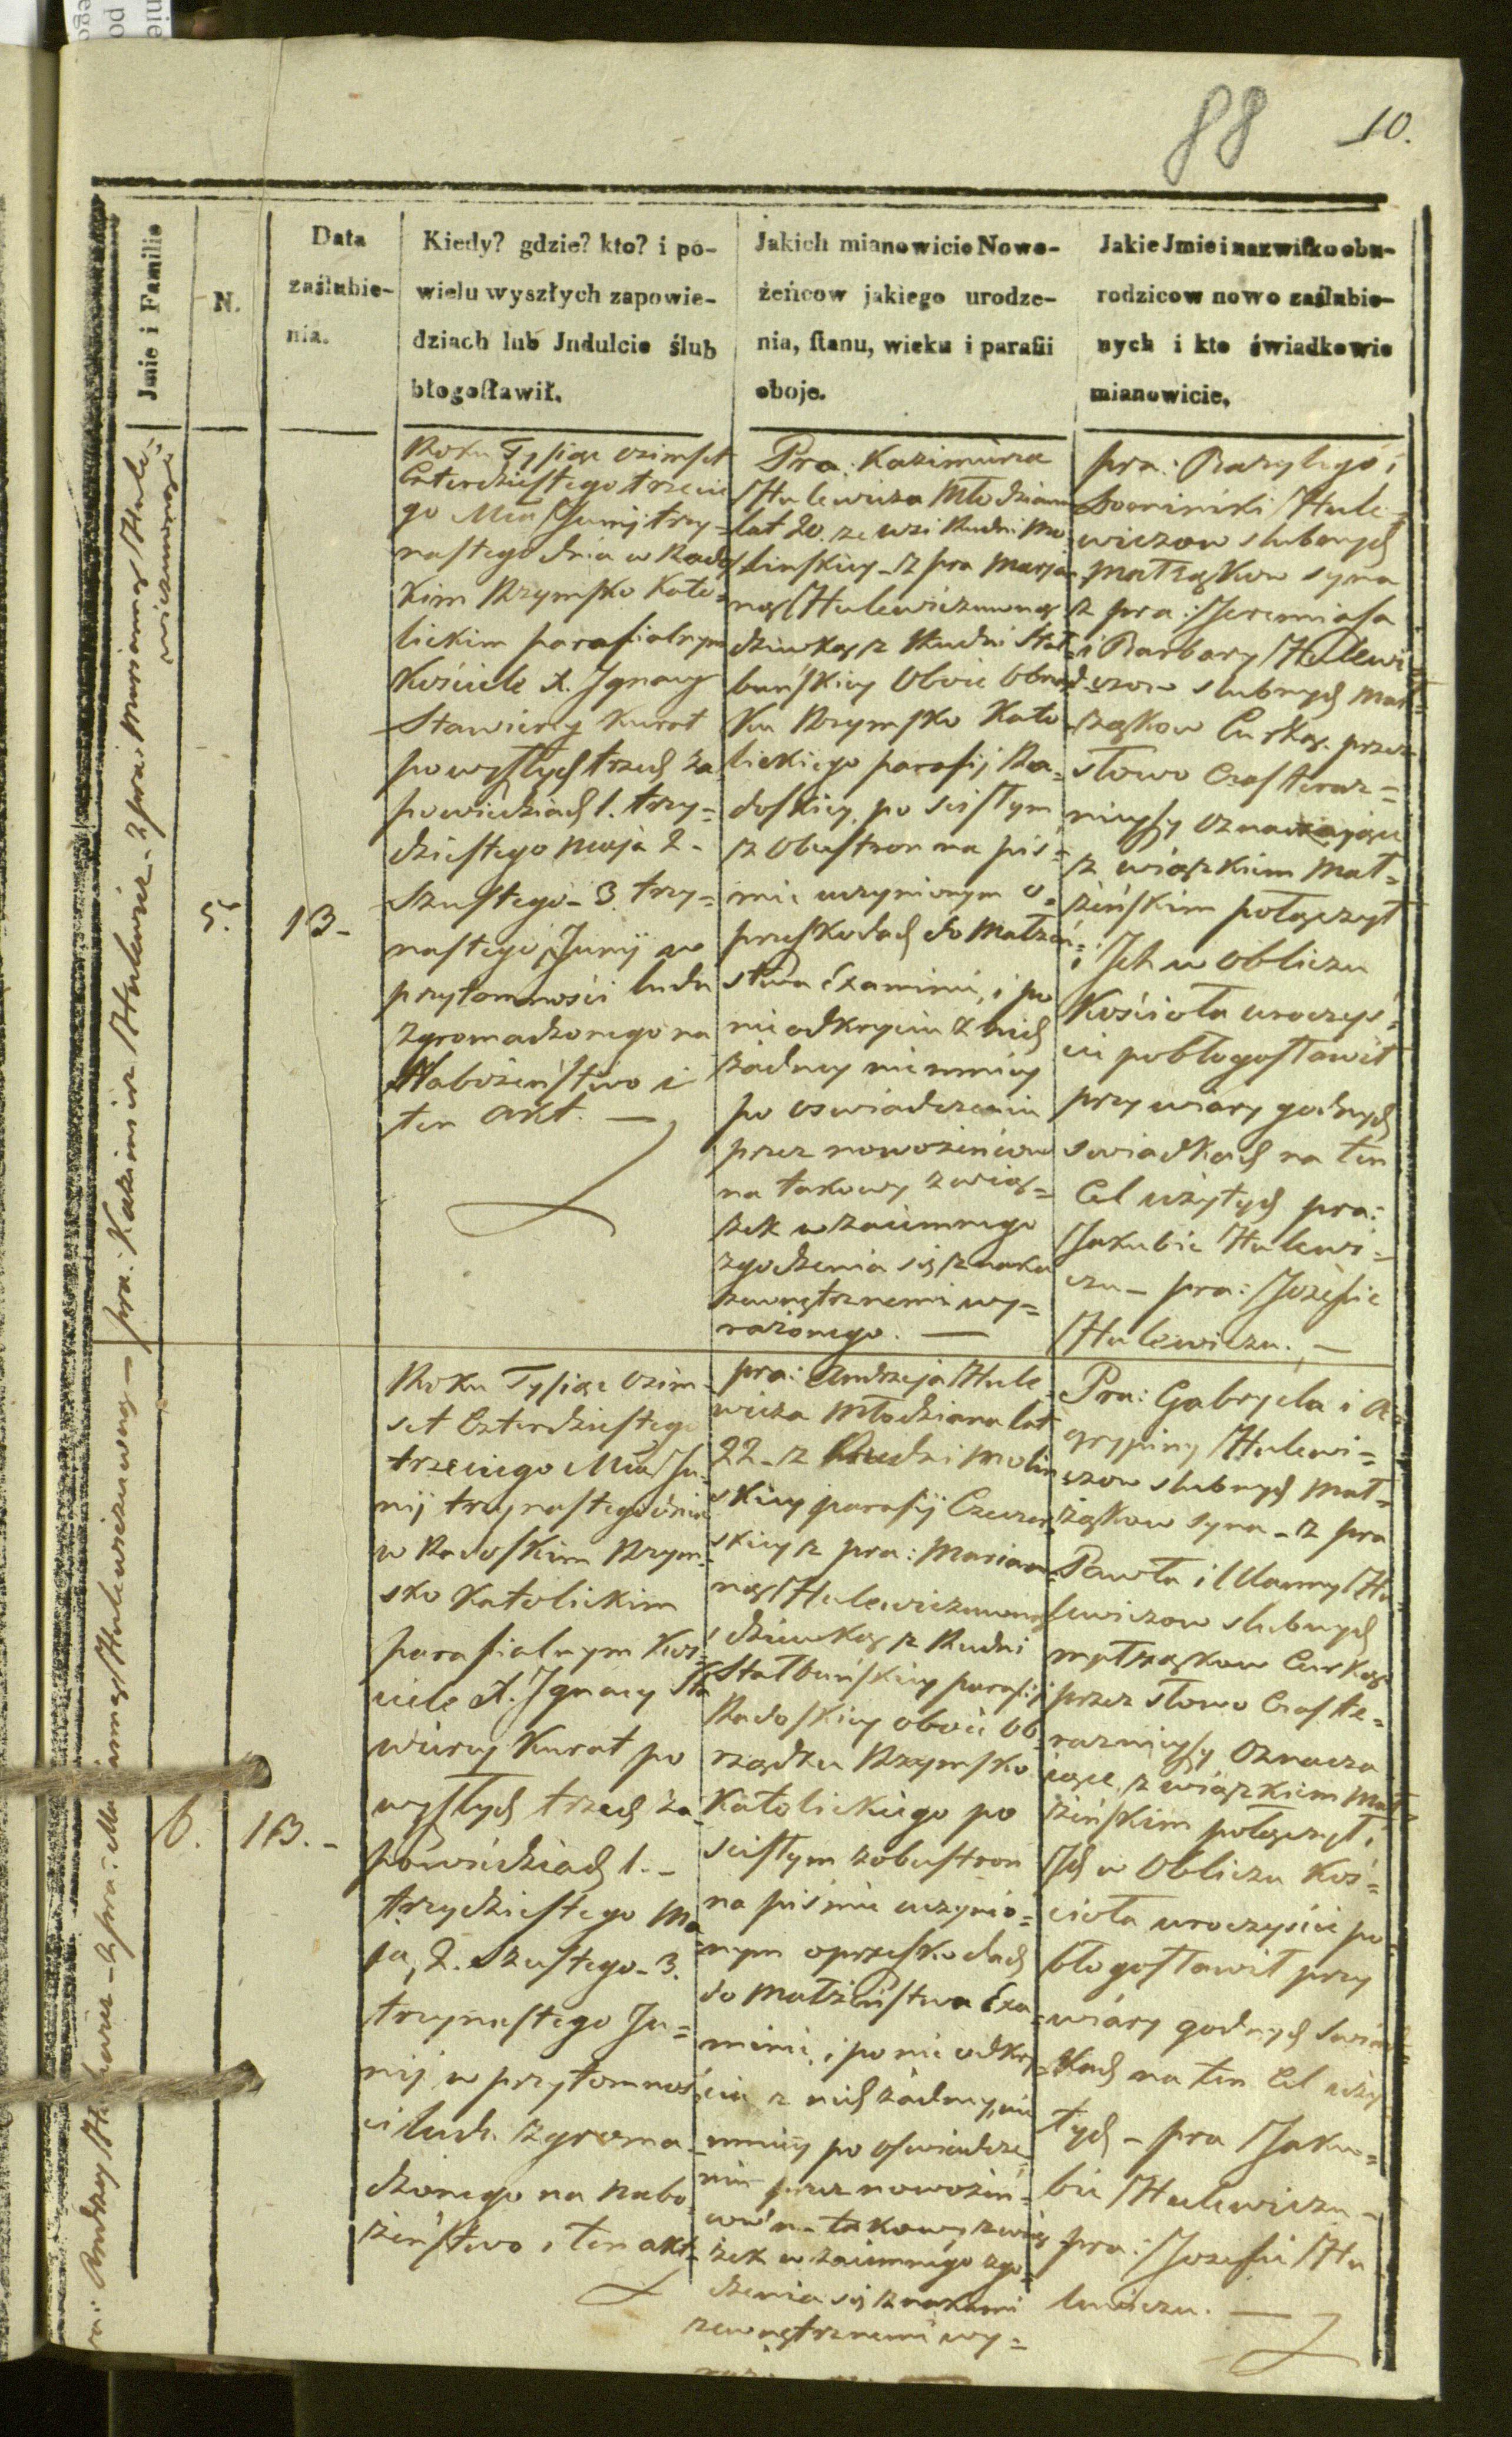 88
10.
Jmie i Familie
N.
Data
zaślubie-
nia.
Kiedy? gdzie? kto? i po-
wielu wyszłych zapowie-
dziach lub Jndulcie ślub
błogosławił.
Jakich mianowicie Nowo-
żeńcow jakiego urodze-
nia, stanu, wieku i parafii
oboje.
Jakie Jmie i nazwisko obu-
rodzicow nowo zaślubio-
nych i kto świadkowie
mianowicie.
pra: Kazimierz Hulewicz - z pra: Marianną Hule-
wiczuwną
5.
13-
Roku Tysiąc ośmset
Czterdziestego trzecie
go Mca Junij trzy-
nastego dnia w Rados
kim Rzymsko Kato-
lickim parafialnym
Kościele X. Jgnacy
Stawiery Kurat
po wyszłych trzech za
powiedziach 1. trzy=
dziestego Maja 2-
Szustego - 3. trzy=
nastego Junij w
przytomności ludu
zgromadzonego na
Nabożeństwo i
ten akt. —
Pra: Kazimierza
Hulewicza Młodziana
lat 20. ze wsi Rudni Mo
linskiey - z pra Marja
ną Hulewiczuwną
dziewką z Rudni Stoł-
buńskiey Oboie Obrząd
ku Rzymsko Kato
lickiego parafij Ra-
doskiey, po scisłym
z obustron na piś=
mie uczynionym o
przeszkodach do Małżeń
stwa Examinie, i po
nie odkryciu z nich
żadney niemniey
po oswiadczeniu
przez nowożeńcow
na takowy zwią=
zek wzaiemnego
zgodzenia się znaka
zewnętrznemi wy=
rażonego. —
pra: Bazylego i
Dominiki Hule=
wiczow slubnych
małżąkow syna
z pra: Jeremiasa
i Barbary Hulewi
czow slubnych mał=
żąkow Curką. przez
słowo Czas teraz=
nieyszy oznaczające
związkiem Mał=
żeńskim połączył
i Jch w obliczu
Kościoła uroczyś=
cie pobłogosławił
przy wiary godnych
swiadkach na ten
Cel użytych pra:
Jakubie Hulewi=
czu - pra: Jozefie
Hulewiczu. —
pra: Andrzey Hulewicz - z pra: Marianną Hulewiczuwną —
6.
13.-
Roku Tysiąc ośm
set Czterdziestego
trzeciego Mca Ju
nij trzynastego dnia
w Radoskim Rzym-
sko Katolickim
parafialnym Koś=
ciele X. Jgnacy Sta
wiery Kurat po
wyszłych trzech za
powiedziach 1. -
trzydziestego Ma
ja, 2. szustego - 3.
trzynastego Ju=
nij w przytomnoś
ci ludu zgroma
dzonego na nabo
żeństwo i ten akt
pra: Andrzeja Hule-
wicza Młodziana lat
22 - z Rudni Molin
skiey parafij Czeczer
skiey z pra: Marian
ną Hulewiczuwną
dziewką z Rudni
Stołbuńskiey parafij
Radoskiey oboie Ob
rządku Rzymsko
Katolickiego po
scisłym z obustron
na piśmie uczynio=
nym o przeszkodach
do Małżeństwa Exa
minie, i po nie odkry
ciu z nich żadney, nie
mniey po oswiadcze
niu przez nowożeń=
ców na takowy zwią
zek wzaiemnego zgo=
dzenia się znakami
zewnętrznemi wy=
Pra: Gabryela i A-
grypiny Hulewi=
czow slubnych mał=
żąkow syna - z pra
Pawła i Ulanny Hu
lewiczow slubnych
małżąkow Curką
przez słowo Czas te=
raznieyszy oznacza
iące, związkiem Mał
żeńskim połączył i
Jch w Obliczu Koś=
cioła uroczyście po
błogosławił przy
wiary godnych swiad
kach na ten Cel uży
tych - pra Jaku=
bie Hulewiczu -
pra: Jozefie Hu
lewiczu. —